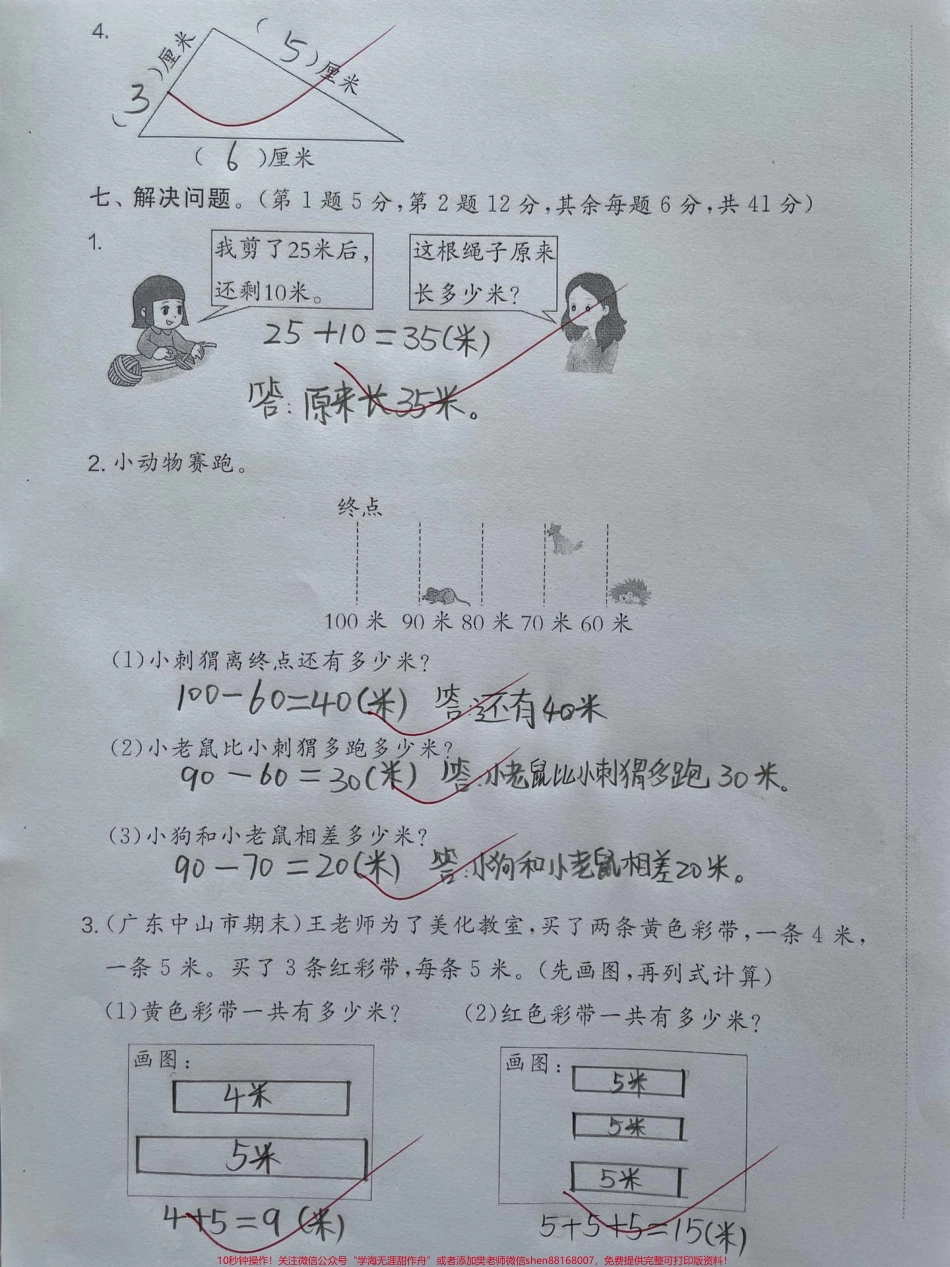 4.
( 5 )厘米
( 3 )厘米
( 6 )厘米
七、解决问题。(第1题5分,第2题12分,其余每题6分,共41分)
1.
我剪了25米后,
还剩10米。
这根绳子原来
长多少米?
25+10=35(米)
答:原来长35米。
2.小动物赛跑。
终点
100米 90米 80米 70米 60米
(1)小刺猬离终点还有多少米?
100-60=40(米) 答:还有40米
(2)小老鼠比小刺猬多跑多少米?
90-60=30(米) 答:小老鼠比小刺猬多跑30米。
(3)小狗和小老鼠相差多少米?
90-70=20(米) 答:小狗和小老鼠相差20米。
3.(广东中山市期末)王老师为了美化教室,买了两条黄色彩带,一条4米,
一条5米。买了3条红彩带,每条5米。(先画图,再列式计算)
(1)黄色彩带一共有多少米? (2)红色彩带一共有多少米?
画图:
4米
5米
4+5=9(米)
画图:
5米
5米
5米
5+5+5=15(米)
10秒钟操作!关注微信公众号“学海无涯甜作舟”或者添加樊老师微信shen88168007,免费提供完整可打印版资料!